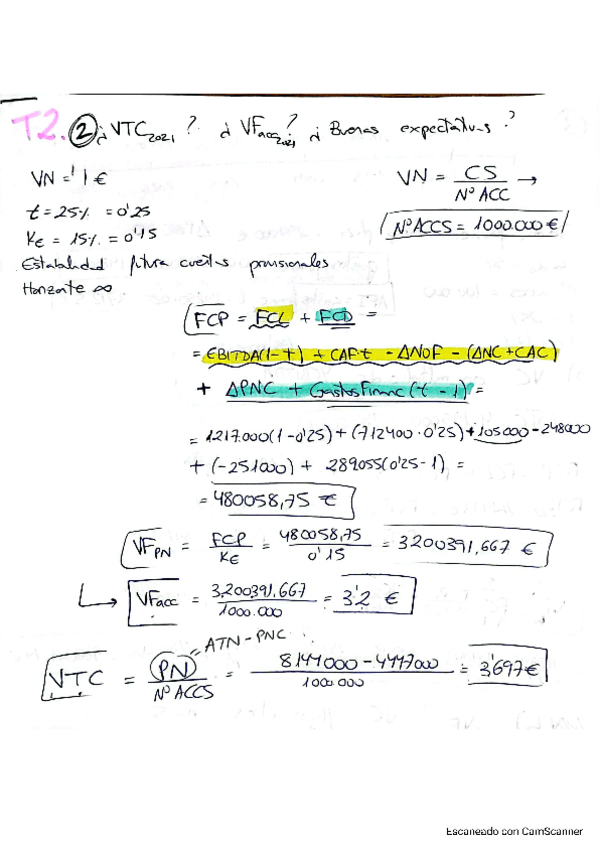 T2. ② ¿VTC2021? ¿VFacc2021? ¿Buenas expectativas?
VN = 1€
VN = CS / Nº ACC →
t = 25% = 0'25
Nº ACCS = 1000.000 €
Ke = 15% = 0'15
Estabilidad futura cuentas provisionales
Horizonte ∞
FCP = FCL + FCD =
= EBITDA(1-t) + CAF·t - ΔNOF - (ΔNC+CAC)
+ ΔPNC + GastosFinanc(t - 1) =
= 1217.000(1-0'25)+(712400·0'25)+105000-248000
+ (-251000) + 289055(0'25-1) =
= 480058,75 €
VFPN = FCP / Ke = 480058,75 / 0'15 = 3200391,667 €
↳ VFacc = 3,200391.667 / 1000.000 = 3'2 €
= ATN - PNC
VTC = PN / Nº ACCS = 8144000 - 4447000 / 1000.000 = 3'697€
Escaneado con CamScanner